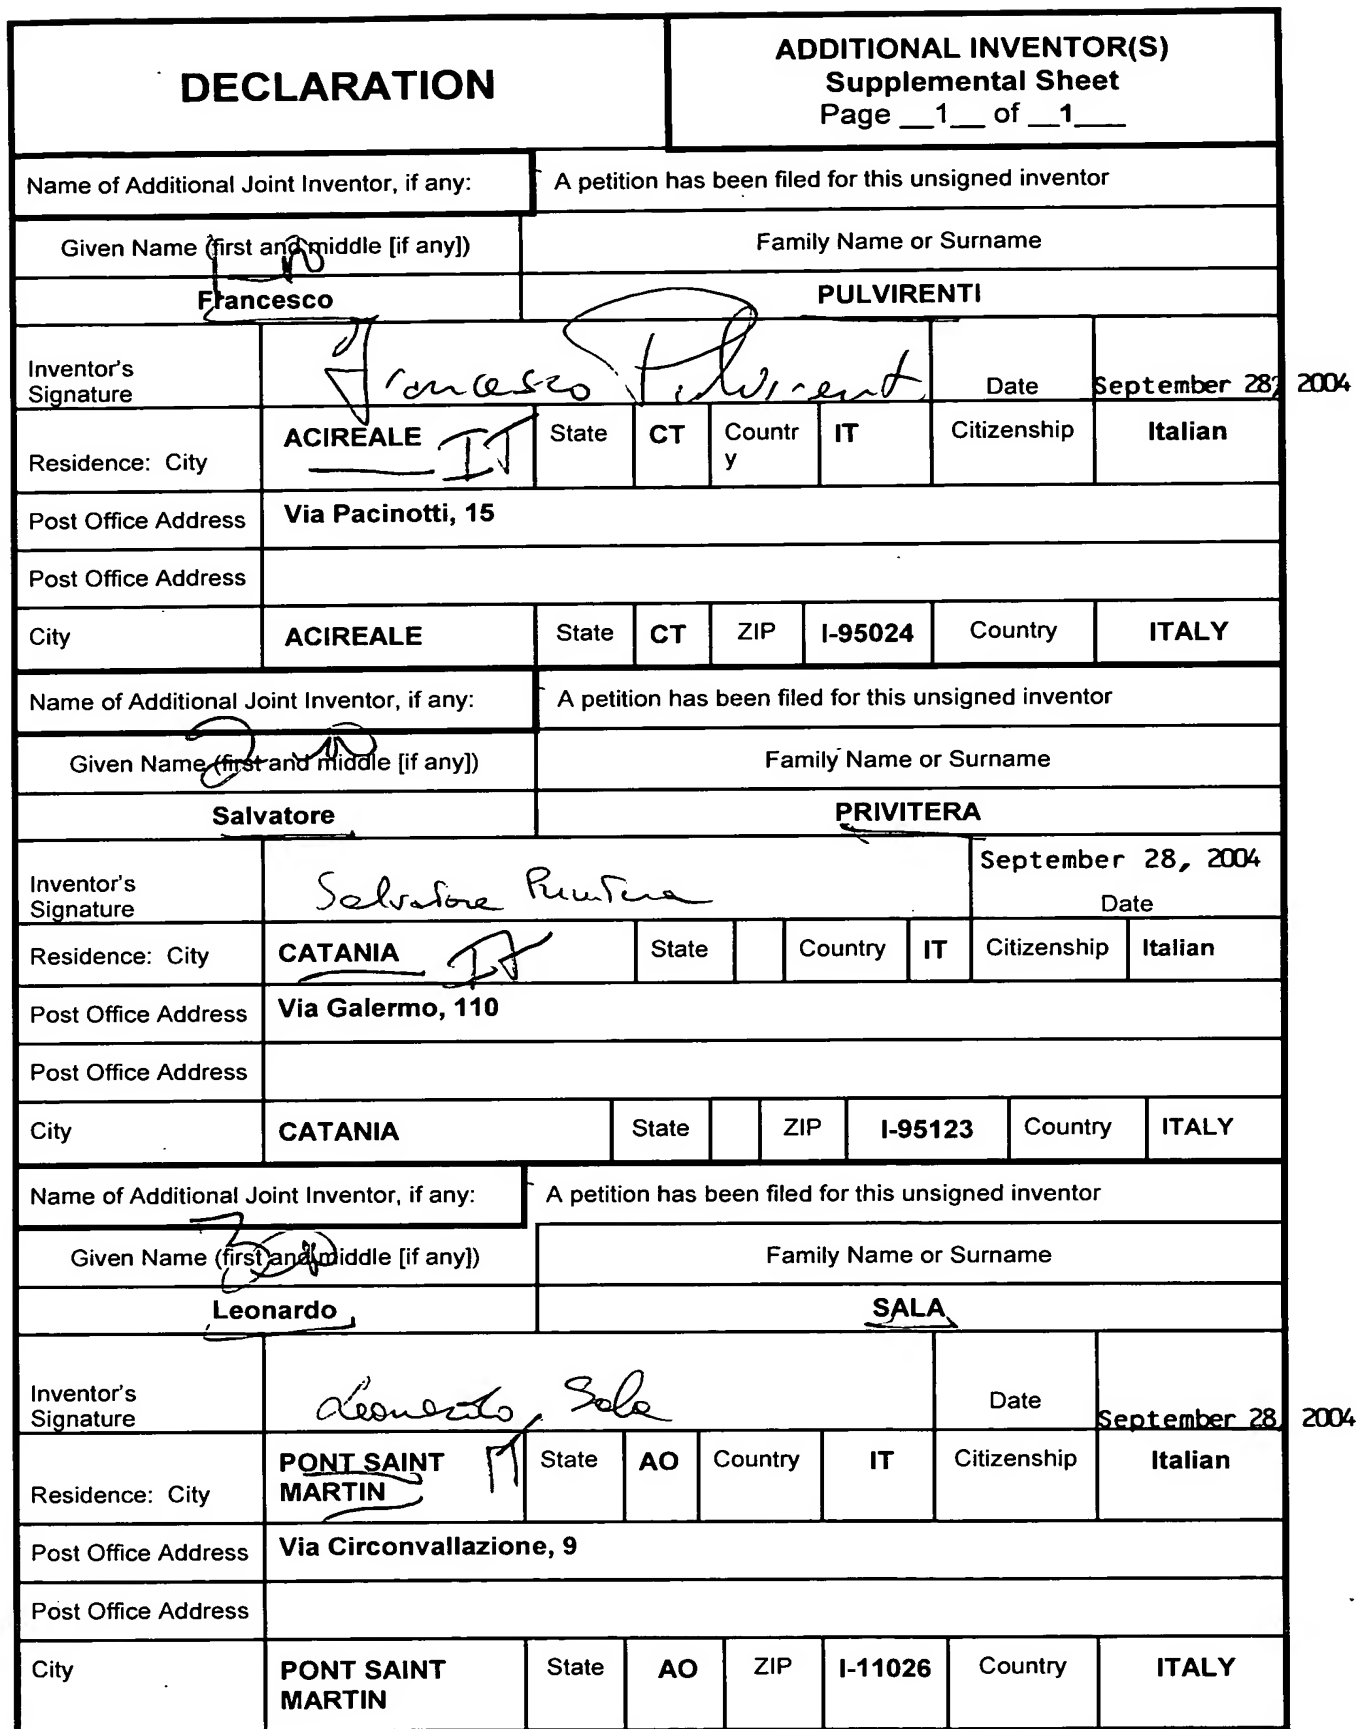 DECLARATION
ADDITIONAL INVENTOR(S)
Supplemental Sheet
Page __1__ of __1___
Name of Additional Joint Inventor, if any:
A petition has been filed for this unsigned inventor
Given Name (first and middle [if any])
Family Name or Surname
Francesco
PULVIRENTI
Inventor's
Signature
Francesco Pulvirenti
Date
September 28, 2004
Residence: City
ACIREALE IT
State
CT
Countr
y
IT
Citizenship
Italian
Post Office Address
Via Pacinotti, 15
Post Office Address
City
ACIREALE
State
CT
ZIP
I-95024
Country
ITALY
Name of Additional Joint Inventor, if any:
A petition has been filed for this unsigned inventor
Given Name (first and middle [if any])
Family Name or Surname
Salvatore
PRIVITERA
Inventor's
Signature
Salvatore Privitera
September 28, 2004
Date
Residence: City
CATANIA IT
State
Country
IT
Citizenship
Italian
Post Office Address
Via Galermo, 110
Post Office Address
City
CATANIA
State
ZIP
I-95123
Country
ITALY
Name of Additional Joint Inventor, if any:
A petition has been filed for this unsigned inventor
Given Name (first and middle [if any])
Family Name or Surname
Leonardo
SALA
Inventor's
Signature
Leonardo Sala
Date
September 28, 2004
Residence: City
PONT SAINT
MARTIN
IT
State
AO
Country
IT
Citizenship
Italian
Post Office Address
Via Circonvallazione, 9
Post Office Address
City
PONT SAINT
MARTIN
State
AO
ZIP
I-11026
Country
ITALY